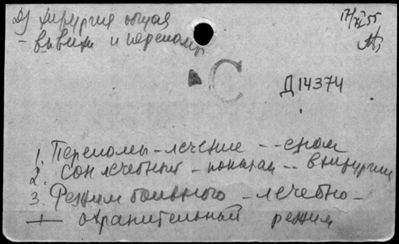 Д) Хирургия общая
17/XI 55
- вывихи и переломы
С
Д14374
1. Переломы - лечение -- сном
2. Сон лечебный - показан -- в хирургии
3. Режим больного - лечебно-
охранительный режим